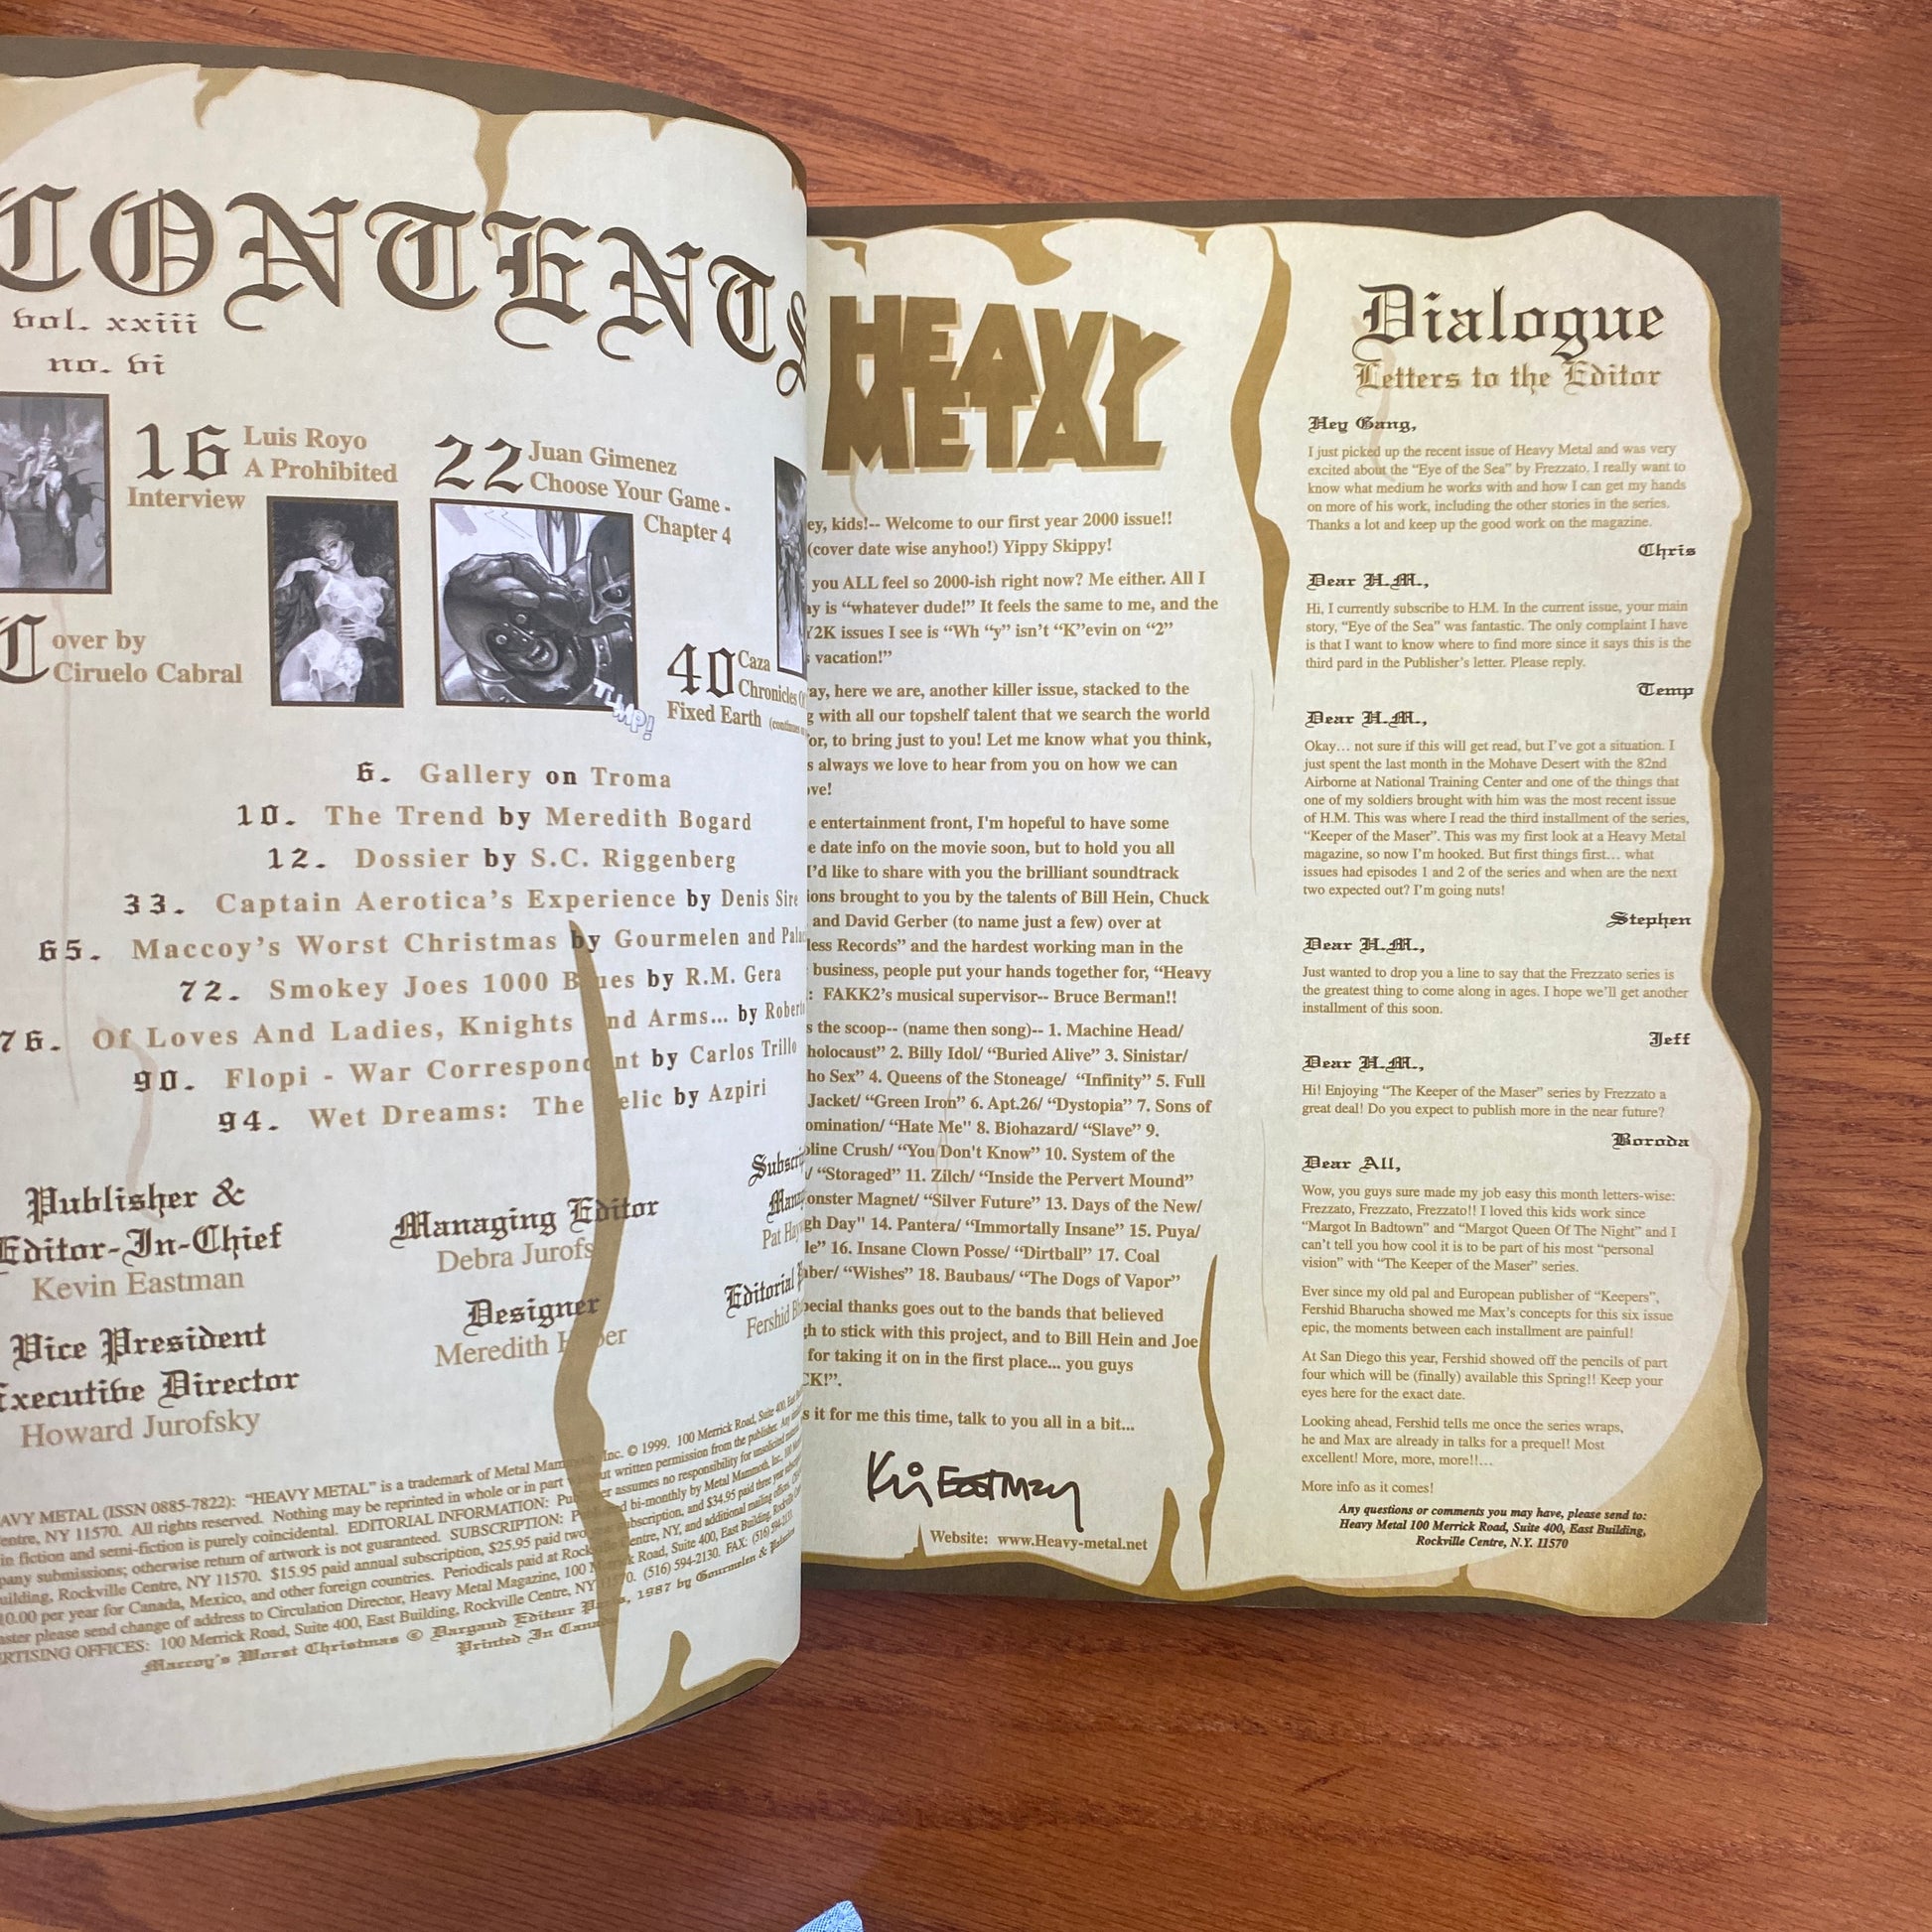 CONTENTS
vol. xxiii
no. vi
16 Luis Royo
A Prohibited
Interview
22 Juan Gimenez
Choose Your Game -
Chapter 4
Cover by
Ciruelo Cabral
40 Caza
Chronicles
Fixed Earth
6. Gallery on Troma
10. The Trend by Meredith Bogard
12. Dossier by S.C. Riggenberg
33. Captain Aerotica's Experience by Denis Sire
65. Maccoy's Worst Christmas by Gourmelen and
72. Smokey Joes 1000 by R.M. Gera
76. Of Loves And Ladies, Knights Arms... by
90. Flopi - War by Carlos Trillo
94. Wet Dreams: The by Azpiri
Publisher &
Editor-In-Chief
Kevin Eastman
Vice President
Executive Director
Howard Jurofsky
Managing Editor
Debra
Designer
Meredith
Pat
Editorial
Fershid
(ISSN 0885-7822): "HEAVY METAL" is a trademark of Metal Inc. © 1999. 100 Merrick Road, Suite 400,
NY 11570. All rights reserved. Nothing may be reprinted in whole or in part written permission from the publisher.
in fiction and semi-fiction is purely coincidental. EDITORIAL INFORMATION: assumes no responsibility for unsolicited
submissions; otherwise return of artwork is not guaranteed. SUBSCRIPTION: bi-monthly by Metal Mammoth, Inc.,
Rockville Centre, NY 11570. $15.95 paid annual subscription, $25.95 paid two subscription, and $34.95 paid three year
per year for Canada, Mexico, and other foreign countries. Periodicals paid at Centre, NY, and additional mailing offices.
please send change of address to Circulation Director, Heavy Metal Magazine, 100 Road, Suite 400, East Building,
OFFICES: 100 Merrick Road, Suite 400, East Building, Rockville Centre, NY (516) 594-2130. FAX: (516)
Maccoy's Worst Christmas © Dargaud Editeur 1987 by Gourmelen &
Printed In
HEAVY
METAL
kids!-- Welcome to our first year 2000 issue!!
(cover date wise anyhoo!) Yippy Skippy!
you ALL feel so 2000-ish right now? Me either. All I
is “whatever dude!” It feels the same to me, and the
issues I see is “Wh “y” isn’t “K”evin on “2”
vacation!”
here we are, another killer issue, stacked to the
with all our topshelf talent that we search the world
to bring just to you! Let me know what you think,
always we love to hear from you on how we can
entertainment front, I'm hopeful to have some
date info on the movie soon, but to hold you all
I’d like to share with you the brilliant soundtrack
brought to you by the talents of Bill Hein, Chuck
and David Gerber (to name just a few) over at
Records” and the hardest working man in the
business, people put your hands together for, “Heavy
: FAKK2’s musical supervisor-- Bruce Berman!!
the scoop-- (name then song)-- 1. Machine Head/
2. Billy Idol/ “Buried Alive” 3. Sinistar/
Sex” 4. Queens of the Stoneage/ “Infinity” 5. Full
Jacket/ “Green Iron” 6. Apt.26/ “Dystopia” 7. Sons of
“Hate Me" 8. Biohazard/ “Slave” 9.
Crush/ “You Don't Know” 10. System of the
/ “Storaged” 11. Zilch/ “Inside the Pervert Mound”
Magnet/ “Silver Future” 13. Days of the New/
Day" 14. Pantera/ “Immortally Insane” 15. Puya/
16. Insane Clown Posse/ “Dirtball” 17. Coal
“Wishes” 18. Baubaus/ “The Dogs of Vapor”
thanks goes out to the bands that believed
to stick with this project, and to Bill Hein and Joe
for taking it on in the first place... you guys
it for me this time, talk to you all in a bit...
Eastman
Website: www.Heavy-metal.net
Dialogue
Letters to the Editor
Hey Gang,
I just picked up the recent issue of Heavy Metal and was very
excited about the “Eye of the Sea” by Frezzato. I really want to
know what medium he works with and how I can get my hands
on more of his work, including the other stories in the series.
Thanks a lot and keep up the good work on the magazine.
Chris
Dear H.M.,
Hi, I currently subscribe to H.M. In the current issue, your main
story, “Eye of the Sea” was fantastic. The only complaint I have
is that I want to know where to find more since it says this is the
third pard in the Publisher’s letter. Please reply.
Temp
Dear H.M.,
Okay… not sure if this will get read, but I’ve got a situation. I
just spent the last month in the Mohave Desert with the 82nd
Airborne at National Training Center and one of the things that
one of my soldiers brought with him was the most recent issue
of H.M. This was where I read the third installment of the series,
“Keeper of the Maser”. This was my first look at a Heavy Metal
magazine, so now I’m hooked. But first things first… what
issues had episodes 1 and 2 of the series and when are the next
two expected out? I’m going nuts!
Stephen
Dear H.M.,
Just wanted to drop you a line to say that the Frezzato series is
the greatest thing to come along in ages. I hope we’ll get another
installment of this soon.
Jeff
Dear H.M.,
Hi! Enjoying “The Keeper of the Maser” series by Frezzato a
great deal! Do you expect to publish more in the near future?
Boroda
Dear All,
Wow, you guys sure made my job easy this month letters-wise:
Frezzato, Frezzato, Frezzato!! I loved this kids work since
“Margot In Badtown” and “Margot Queen Of The Night” and I
can’t tell you how cool it is to be part of his most “personal
vision” with “The Keeper of the Maser” series.
Ever since my old pal and European publisher of “Keepers”,
Fershid Bharucha showed me Max’s concepts for this six issue
epic, the moments between each installment are painful!
At San Diego this year, Fershid showed off the pencils of part
four which will be (finally) available this Spring!! Keep your
eyes here for the exact date.
Looking ahead, Fershid tells me once the series wraps,
he and Max are already in talks for a prequel! Most
excellent! More, more, more!!…
More info as it comes!
Any questions or comments you may have, please send to:
Heavy Metal 100 Merrick Road, Suite 400, East Building,
Rockville Centre, N.Y. 11570